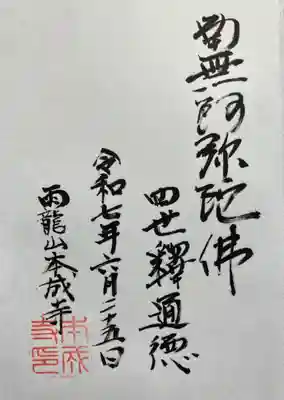 南無阿弥陀佛
四世釋通德
令和七年六月二十五日
雨龍山本成寺
本成
寺印